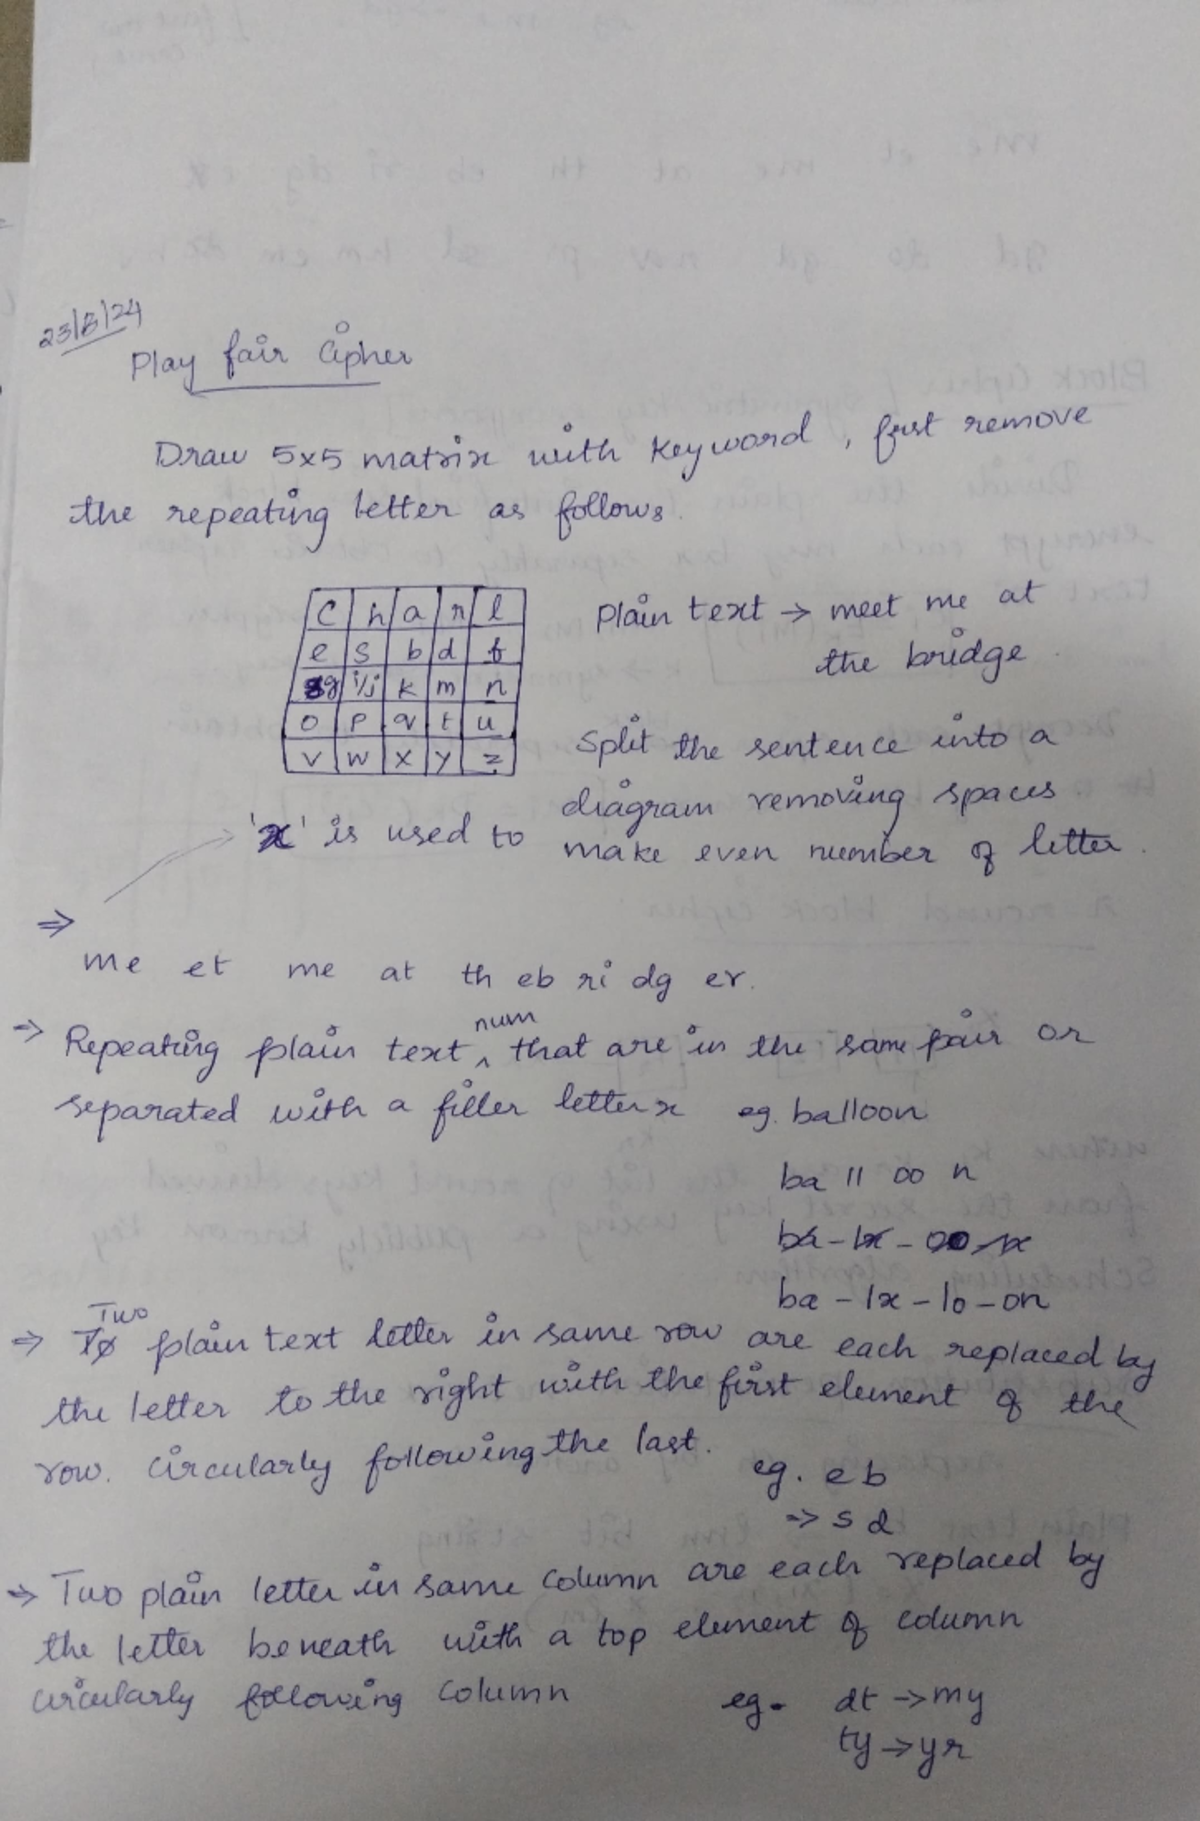 23/8/24
Play fair Cipher
Draw 5x5 matrix with keyword, first remove
the repeating letter as follows.
c h a r l
e s b d f
g i/j k m n
o p q t u
v w x y z
Plain text → meet me at
the bridge.
Split the sentence into a
diagram removing spaces
'x' is used to make even number of letter.
⇒
me et me at th eb ri dg ex.
⇒ Repeating plain text num that are in the same pair or
separated with a filler letter x eg. balloon
ba ll oo n
ba - lx - oo - nx
ba - lx - lo - on
⇒ Two plain text letter in same row are each replaced by
the letter to the right with the first element of the
row. circularly following the last.
eg. eb
⇒ sd
⇒ Two plain letter in same column are each replaced by
the letter beneath with a top element of column
circularly following column
eg. dt → my
ty → yr